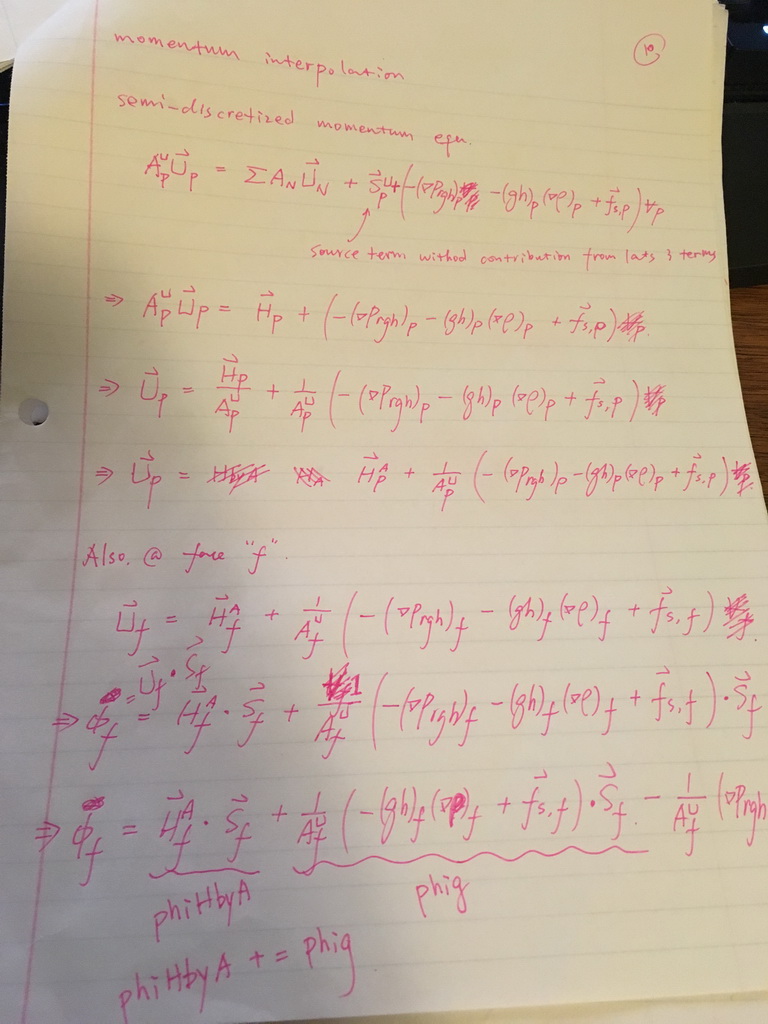 momentum interpolation
10
semi-discretized momentum equ.
A_p^U \vec{U}_p = Σ A_N \vec{U}_N + \vec{S}_p^U + (-(∇P_rgh)_p - (gh)_p (∇ρ)_p + \vec{f}_{s,p}) V_p
source term withod contribution from lats 3 terms
⇒ A_p^U \vec{U}_p = \vec{H}_p + (-(∇P_rgh)_p - (gh)_p (∇ρ)_p + \vec{f}_{s,p})
⇒ \vec{U}_p = \vec{H}_p / A_p^U + 1/A_p^U (-(∇P_rgh)_p - (gh)_p (∇ρ)_p + \vec{f}_{s,p})
⇒ \vec{U}_p = \vec{H}_p^A + 1/A_p^U (-(∇P_rgh)_p - (gh)_p (∇ρ)_p + \vec{f}_{s,p})
Also, @ face "f".
\vec{U}_f = \vec{H}_f^A + 1/A_f^U (-(∇P_rgh)_f - (gh)_f (∇ρ)_f + \vec{f}_{s,f})
= \vec{U}_f · \vec{S}_f
⇒ φ_f = \vec{H}_f^A · \vec{S}_f + 1/A_f^U (-(∇P_rgh)_f - (gh)_f (∇ρ)_f + \vec{f}_{s,f}) · \vec{S}_f
⇒ φ_f = \vec{H}_f^A · \vec{S}_f + 1/A_f^U (-(gh)_f (∇ρ)_f + \vec{f}_{s,f}) · \vec{S}_f - 1/A_f^U (∇P_rgh
phiHbyA phig
phiHbyA += phig